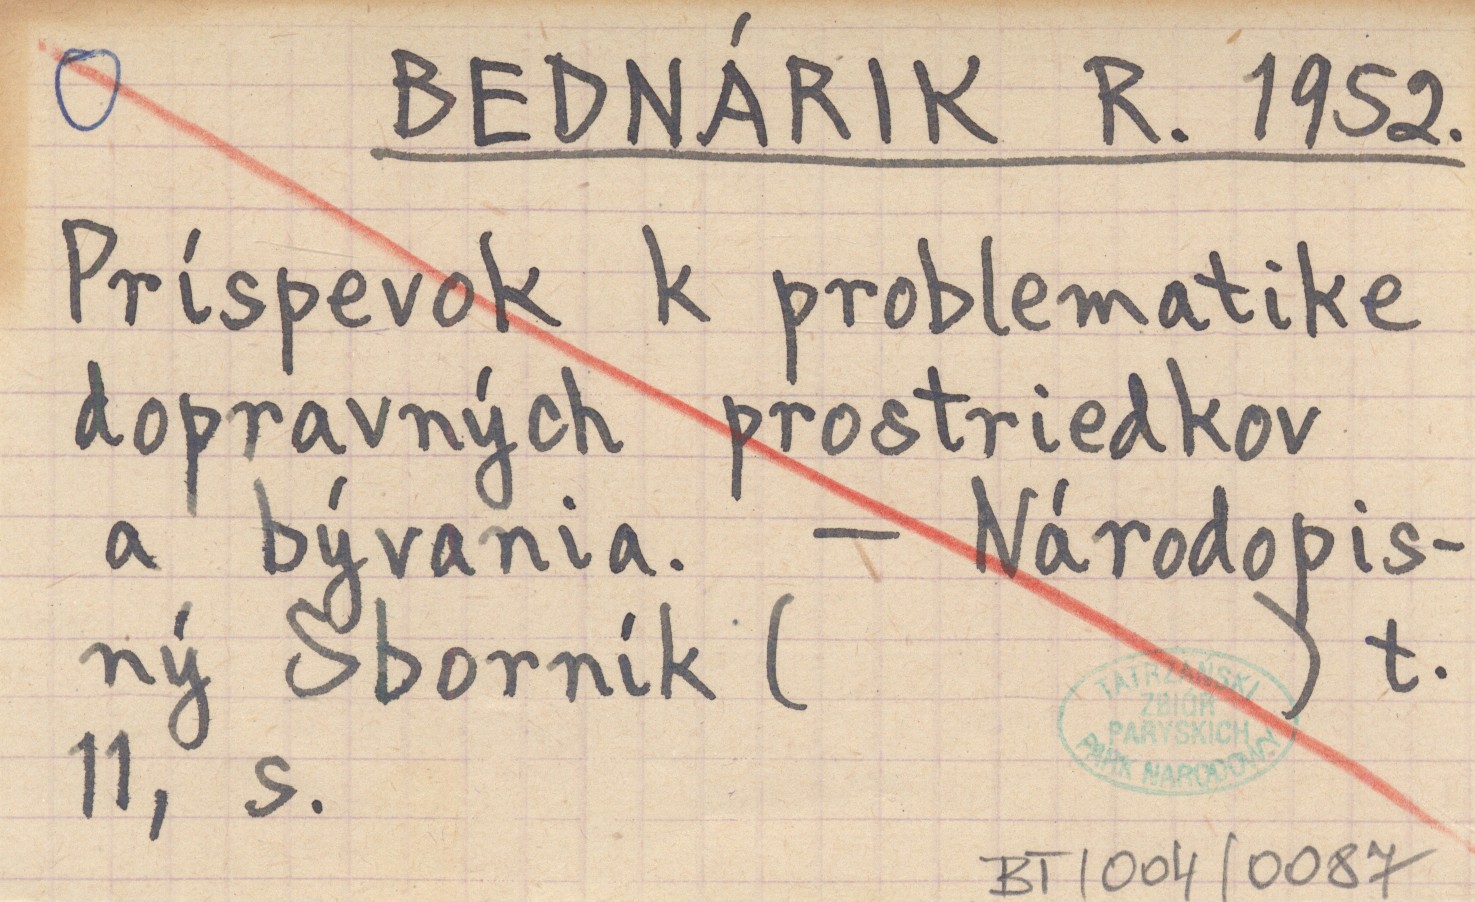 BEDNÁRIK R. 1952.
Príspevok k problematike
dopravných prostriedkov
a bývania. — Národopis-
ný Sborník ( ) t.
11, s.
TATRZAŃSKI
ZBIÓR
PARYSKICH
PARK NARODOWY
BT/004/0087